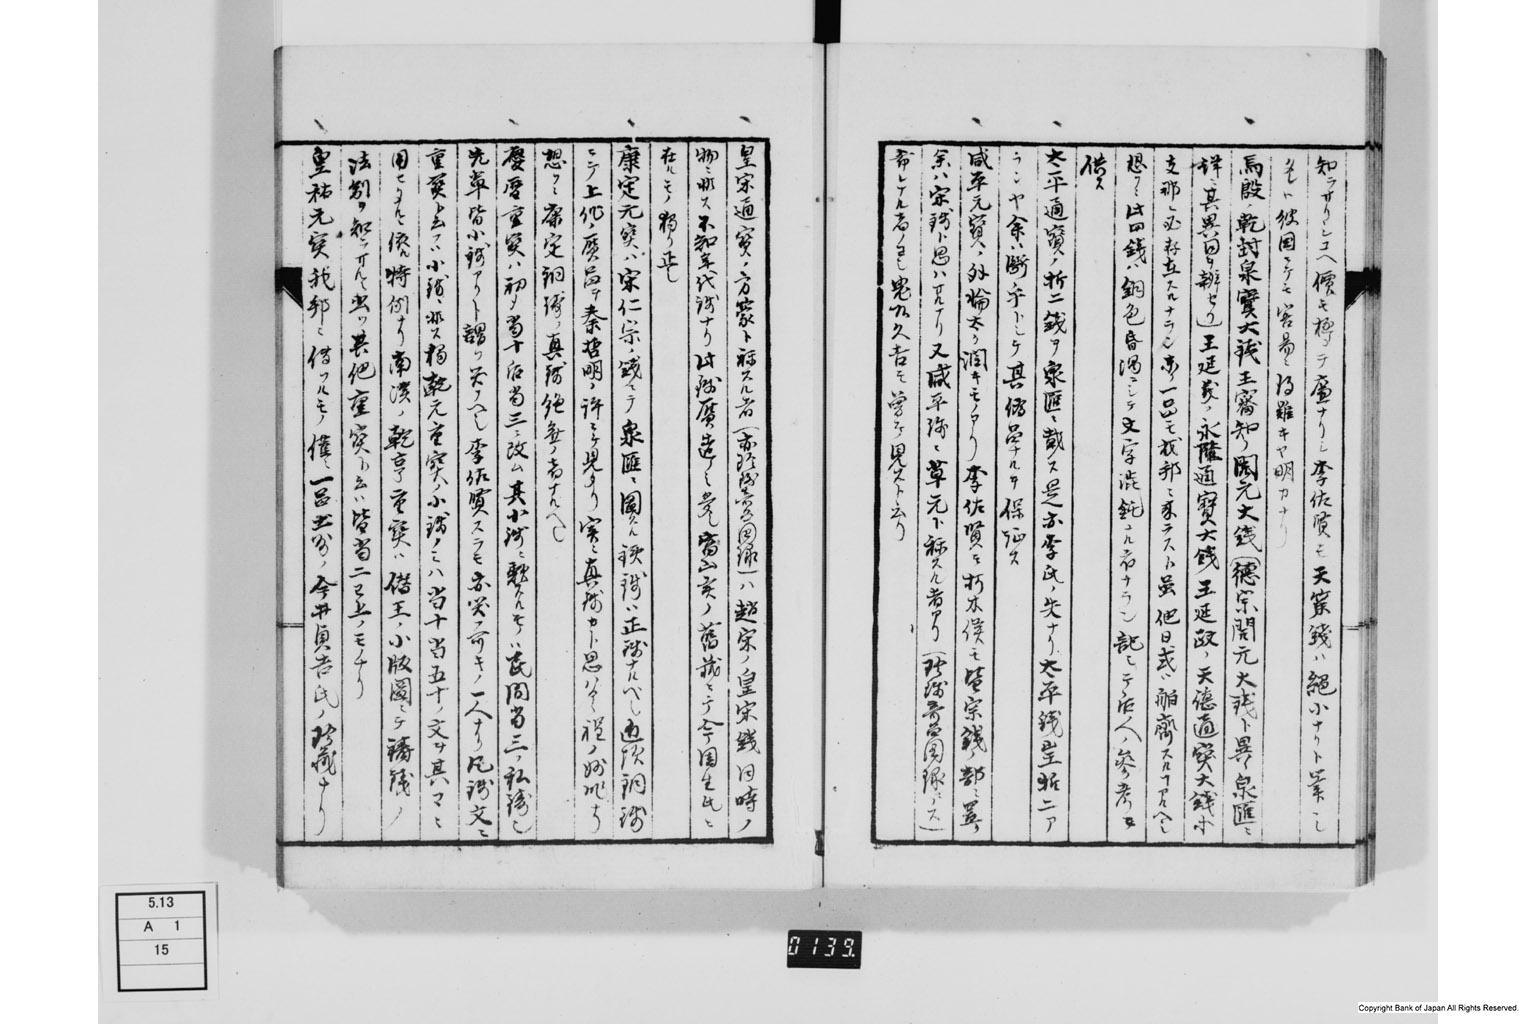 知ラザリシユヘ價モ極メテ廉ナリシ李佐賢モ天策錢ハ絕小ナリト業シ
彼国ニテモ容昜ニ得難キヤ明カナリ
馬殷ノ乾封泉寶大錢王審知ノ開元大錢(德宗開元大錢ト異ル泉匯ニ
詳ニ其異同ヲ辨セリ)王延羲ノ永隆通寶大錢王延政ノ天德通寶大錢ホ
支那ニ必存在スルナラン亦一品モ我邦ニ来ラスト虽他日或ハ舶齎スルヿアルヘシ
想フニ此四錢ハ銅色昏濁ニシテ文字混鈍ナル者ナラン記シテ后人ノ參考ニ
供ス
太平通寶ノ折二錢ヲ泉匯ニ載ス是亦李氏ノ失ナリ太平錢豈折二ア
ランヤ余ハ断乎トシテ其偽品ナルヲ保証ス
咸平元寶ノ外輪太タ濶キモノアリ李佐賢モ朽木侯モ皆宗錢ノ部ニ置ク
余ハ宋錢ト思ハサルナリ又咸平錢ニ草元ト称スル者アリ(珍錢奇品図録ニ入ス)
奇ナル者ノヨシ鬼九久吉モ曽テ見スト云リ
皇宋通寶ノ方篆ト称スル者(亦珍錢奇品図録)ハ趙宋ノ皇宋錢同時ノ
物ニ非ス不知年代錢ナリ此錢贋造多シ畠山家ノ舊蔵ニテ今周生氏ニ
在ルモノ獨リ正シ
康定元寶ハ宋仁宗ノ錢ニテ泉匯ニ圖スル鉄錢ハ正錢ナルベシ近頃銅錢
ニテ上作ノ贋品ヲ秦哲明ノ許ニテ見タリ実ニ真錢カト思ハルヽ程ノ妙作ナリ
想フニ康定銅錢ノ真錢絶無ノ者ナルヘシ
慶厯重寶ハ初メ当十后当三ニ改ム其小錢ニ類スルモノハ民間当三ノ私鋳也
先軰皆小錢アリト謂フ笑フヘシ李佐賢スラモ亦笑フ可キノ一人ナリ凡錢文ニ
重寶ト云フハ小錢ニ非ス独乾元重寶ノ小錢ノミハ当十当五十ノ文ヲ其マヽニ
用セタル依ル特例ナリ南漢ノ乾亨重寶ハ僭王ノ小版圖ニテ鋳錢ノ
法制ヲ知ラサルニ出ツ其他重寶ト云ハ皆当二已上ノモノナリ
皇祐元寶我邦ニ傳ハルモノ僅ニ一品土州ノ今井貞吉氏ノ珍蔵ナリ
5.13
A 1
15
0139.
Copyright Bank of Japan All Rights Reserved.